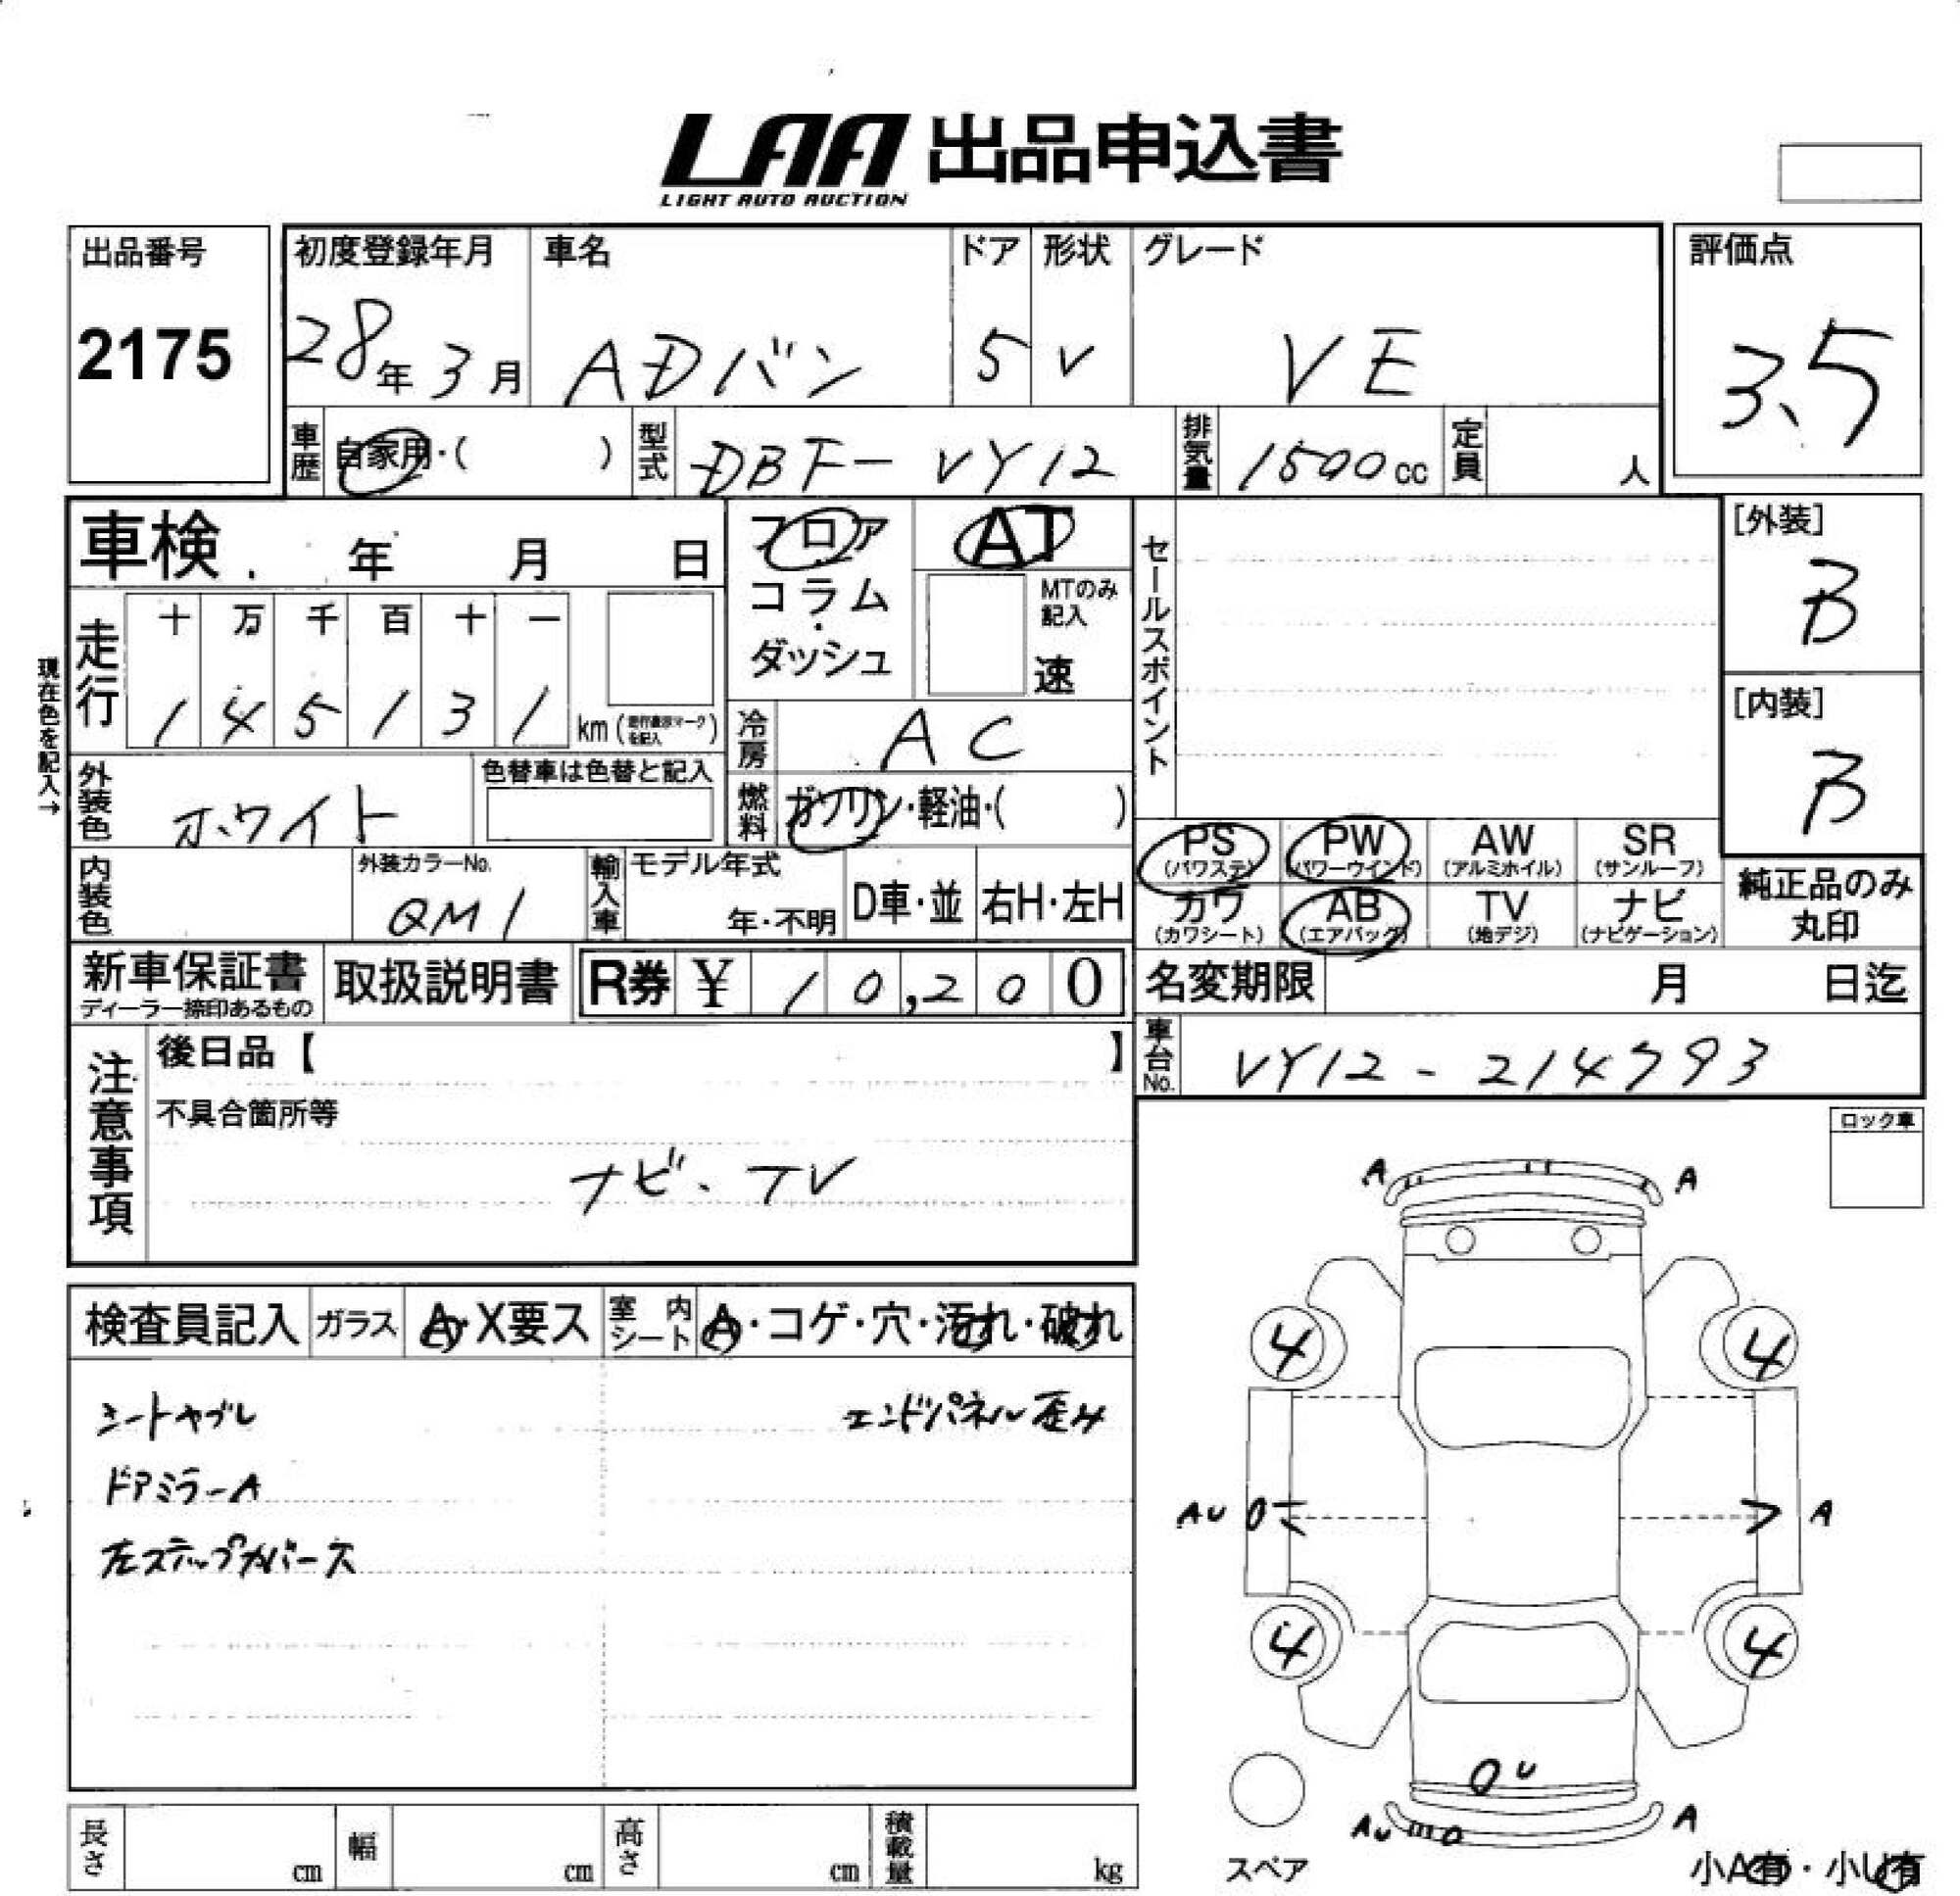 LAA 出品申込書
LIGHT AUTO AUCTION
出品番号
2175
初度登録年月
28年 3月
車名
ADバン
ドア
5
形状
V
グレード
VE
評価点
3.5
車歴
自家用・( )
型式
DBF-VY12
排気量
1500cc
定員
人
車検 年 月 日
フロア
コラム
・
ダッシュ
AT
MTのみ
記入
速
セールスポイント
[外装]
B
[内装]
B
現在色を記入→
走行
十 万 千 百 十 一
1 4 5 1 3 1 km
冷房
AC
外装色
ホワイト
色替車は色替と記入
燃料
ガソリン・軽油・( )
PS
(パワステ)
PW
(パワーウインド)
AW
(アルミホイル)
SR
(サンルーフ)
カワ
(カワシート)
AB
(エアバック)
TV
(地デジ)
ナビ
(ナビゲーション)
純正品のみ
丸印
内装色
外装カラーNo.
QM1
輸入車
モデル年式
年・不明
D車・並
右H・左H
新車保証書
ディーラー捺印あるもの
取扱説明書
R券 ¥ 10,200
名変期限 月 日迄
車台No.
VY12-214793
注意事項
後日品【 】
不具合箇所等
ナビ、TV
ロック車
検査員記入
ガラス
A・X要ス
室内
シート
A・コゲ・穴・汚れ・破れ
シートヤブレ
エンドパネル歪み
ドアミラーA
左ステップカバー欠
A
A
4
4
AU
A
4
4
U
AU
A
スペア
小A有・小U有
長さ
cm
幅
cm
高さ
cm
積載量
kg